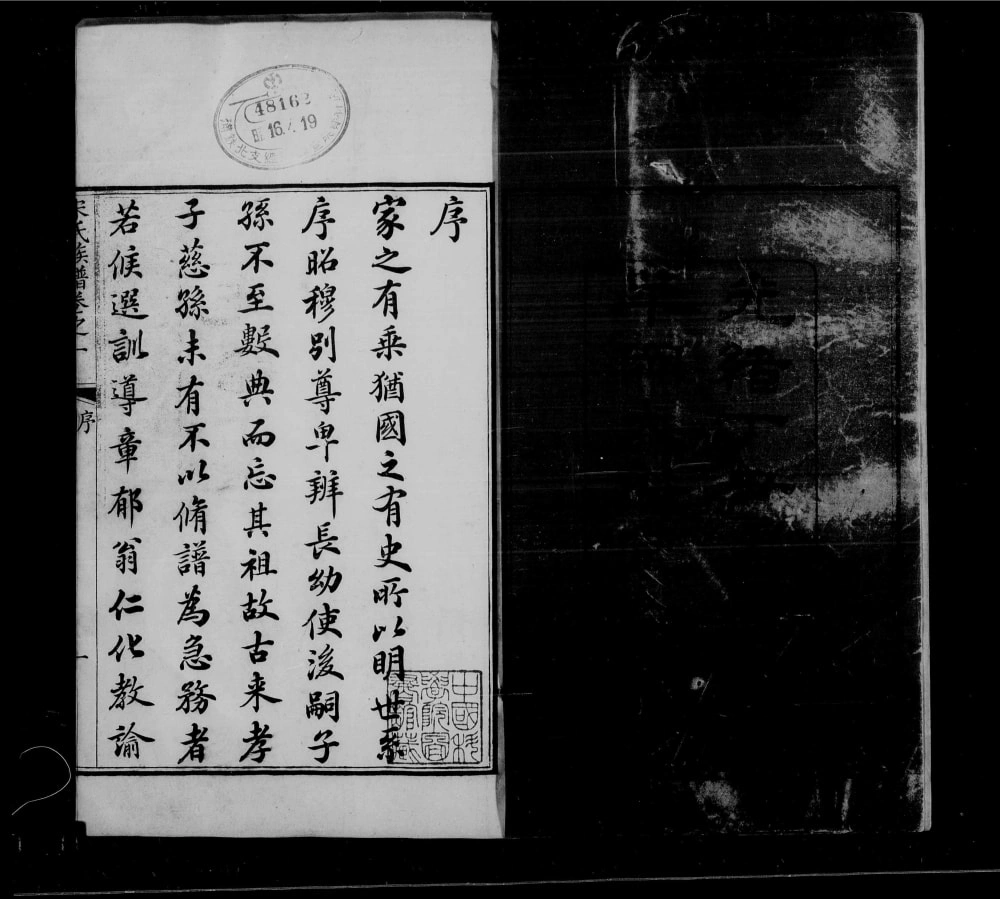 序
家之有乘猶國之有史所以明世系
序昭穆別尊卑辨長幼使後嗣子
孫不至數典而忘其祖故古来孝
子慈孫未有不以脩譜為急務者
若候選訓導章郁翁仁化教諭
宋氏族譜卷之一
序
一
48162
16.4.19
中國科
學院圖
書館藏